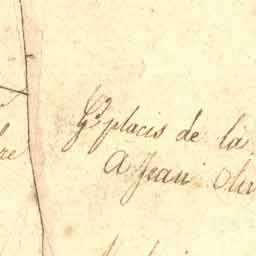 Gd placis de la
A Jean Oliv